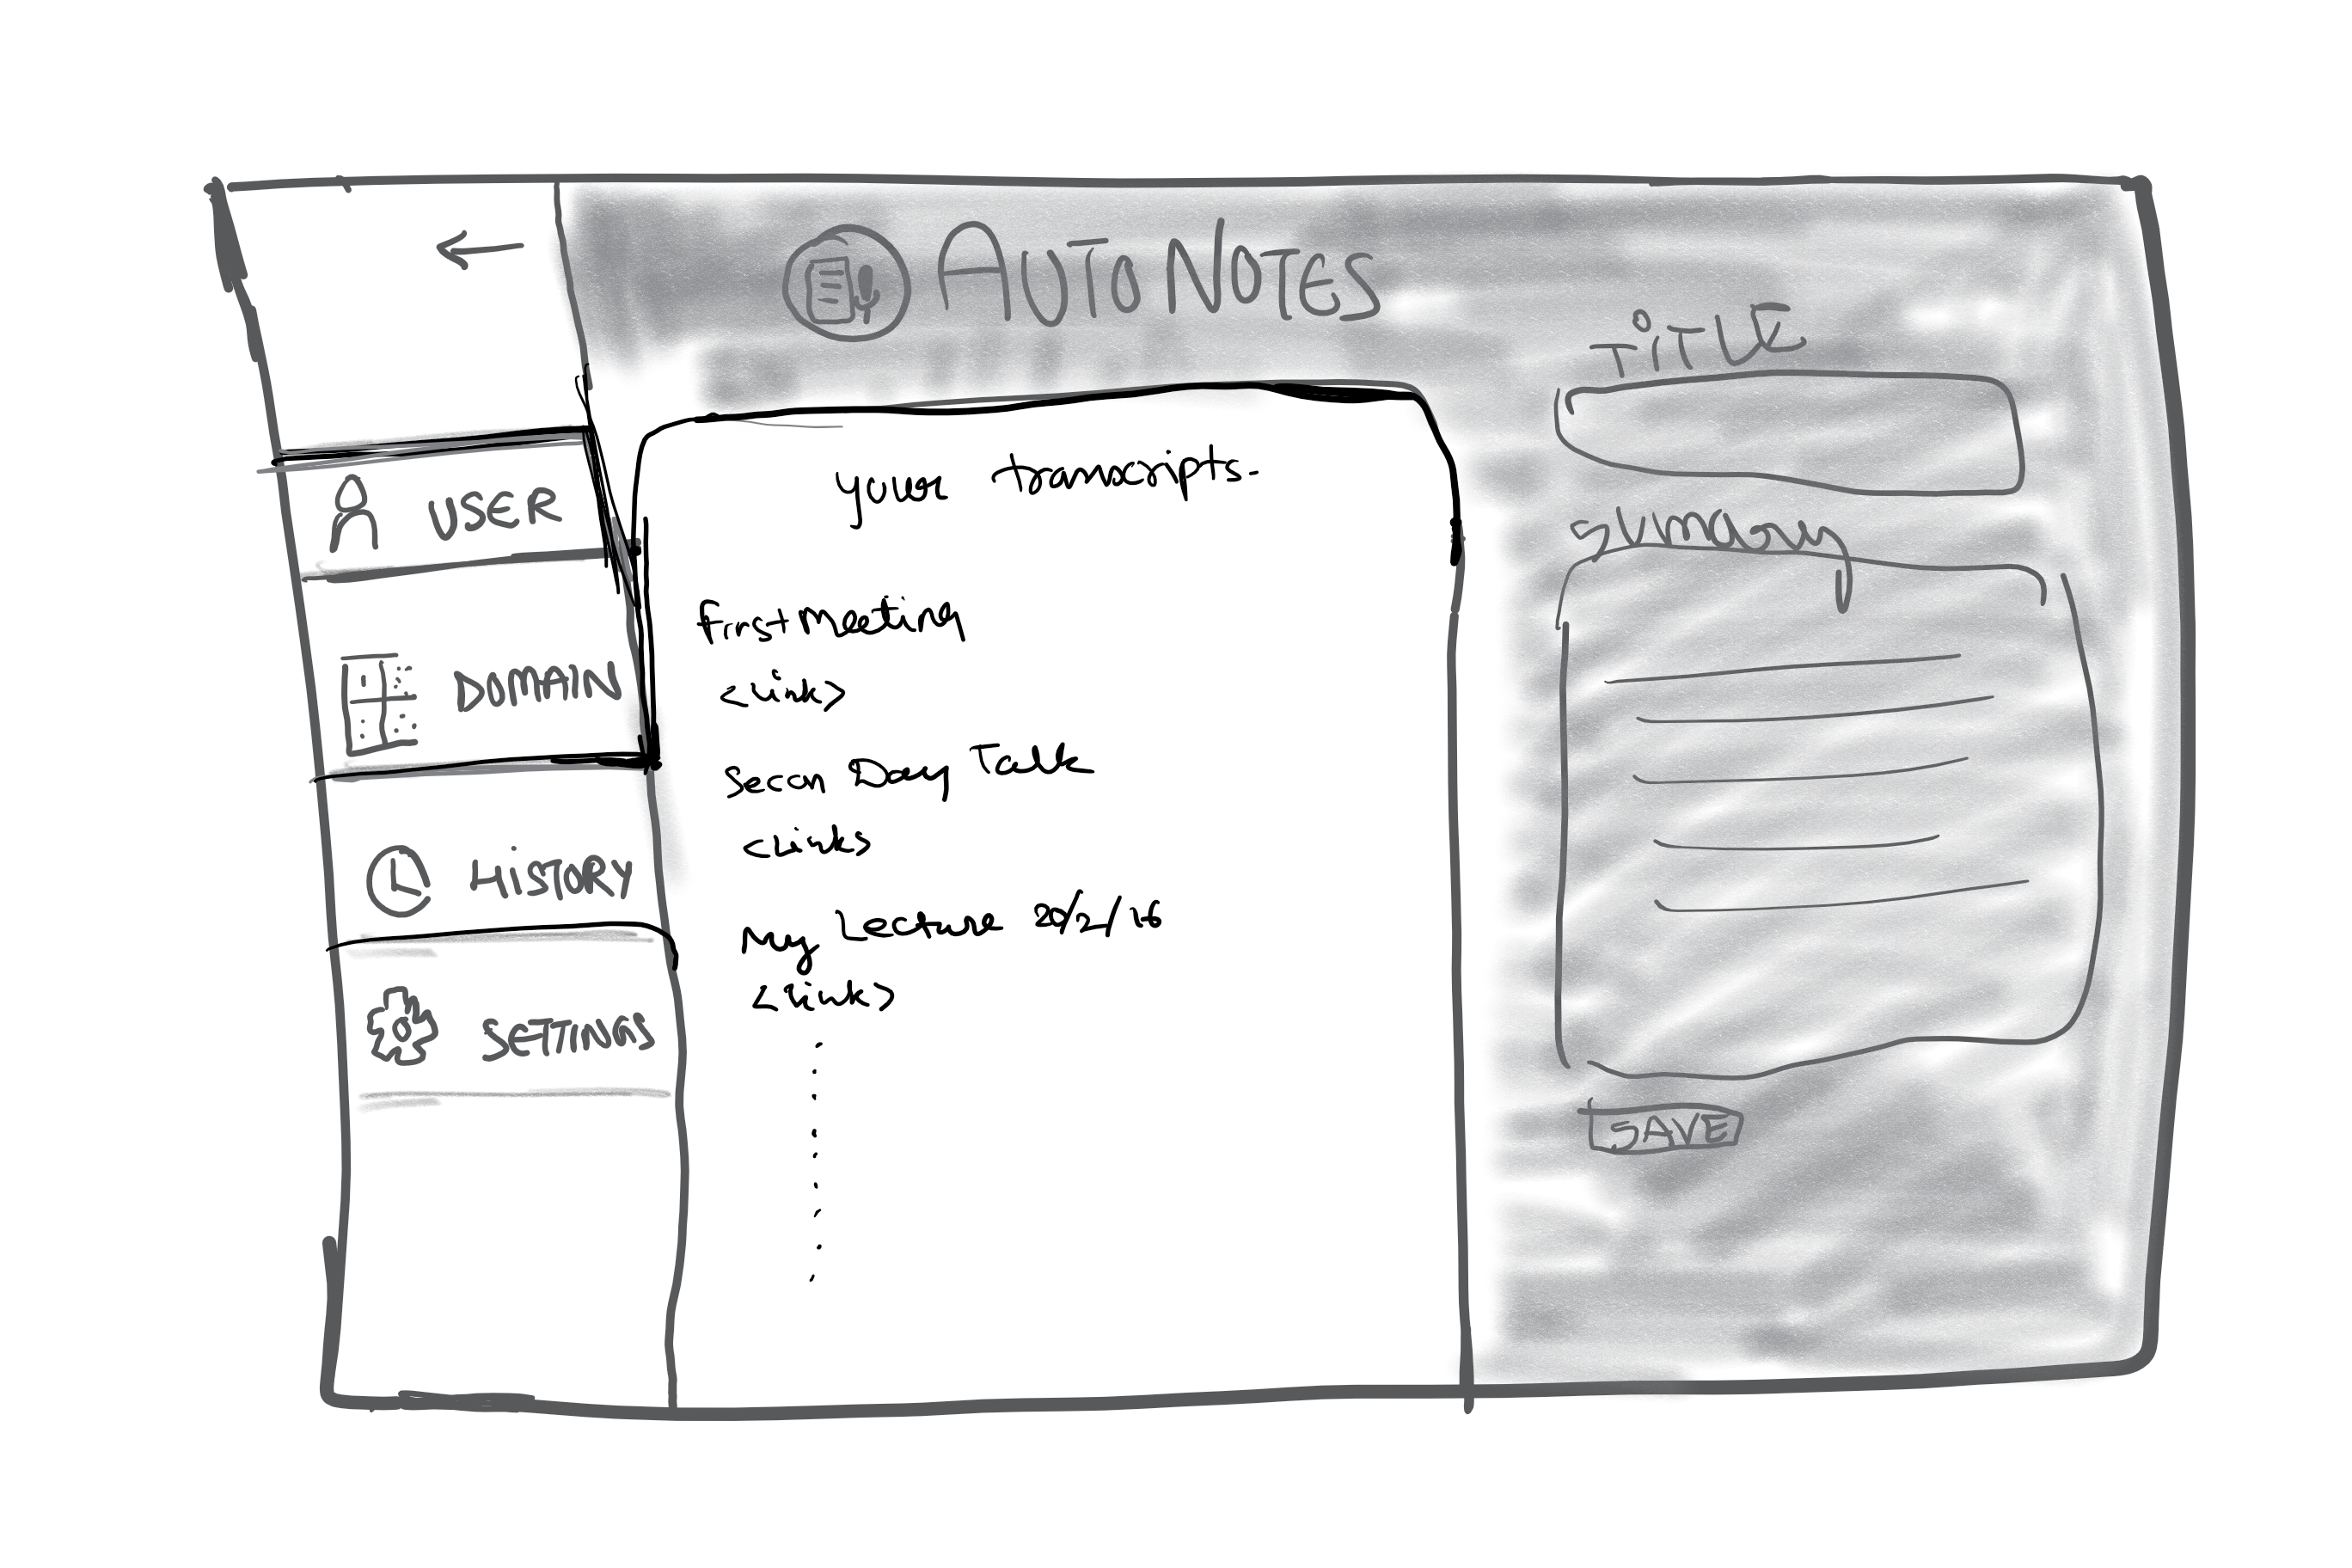 AUTO NOTES
USER
DOMAIN
HISTORY
SETTINGS
your transcripts.
First Meeting
<link>
Secon Day Talk
<links
My Lecture 20/2/16
<link>
TITLE
SUMMARY
SAVE